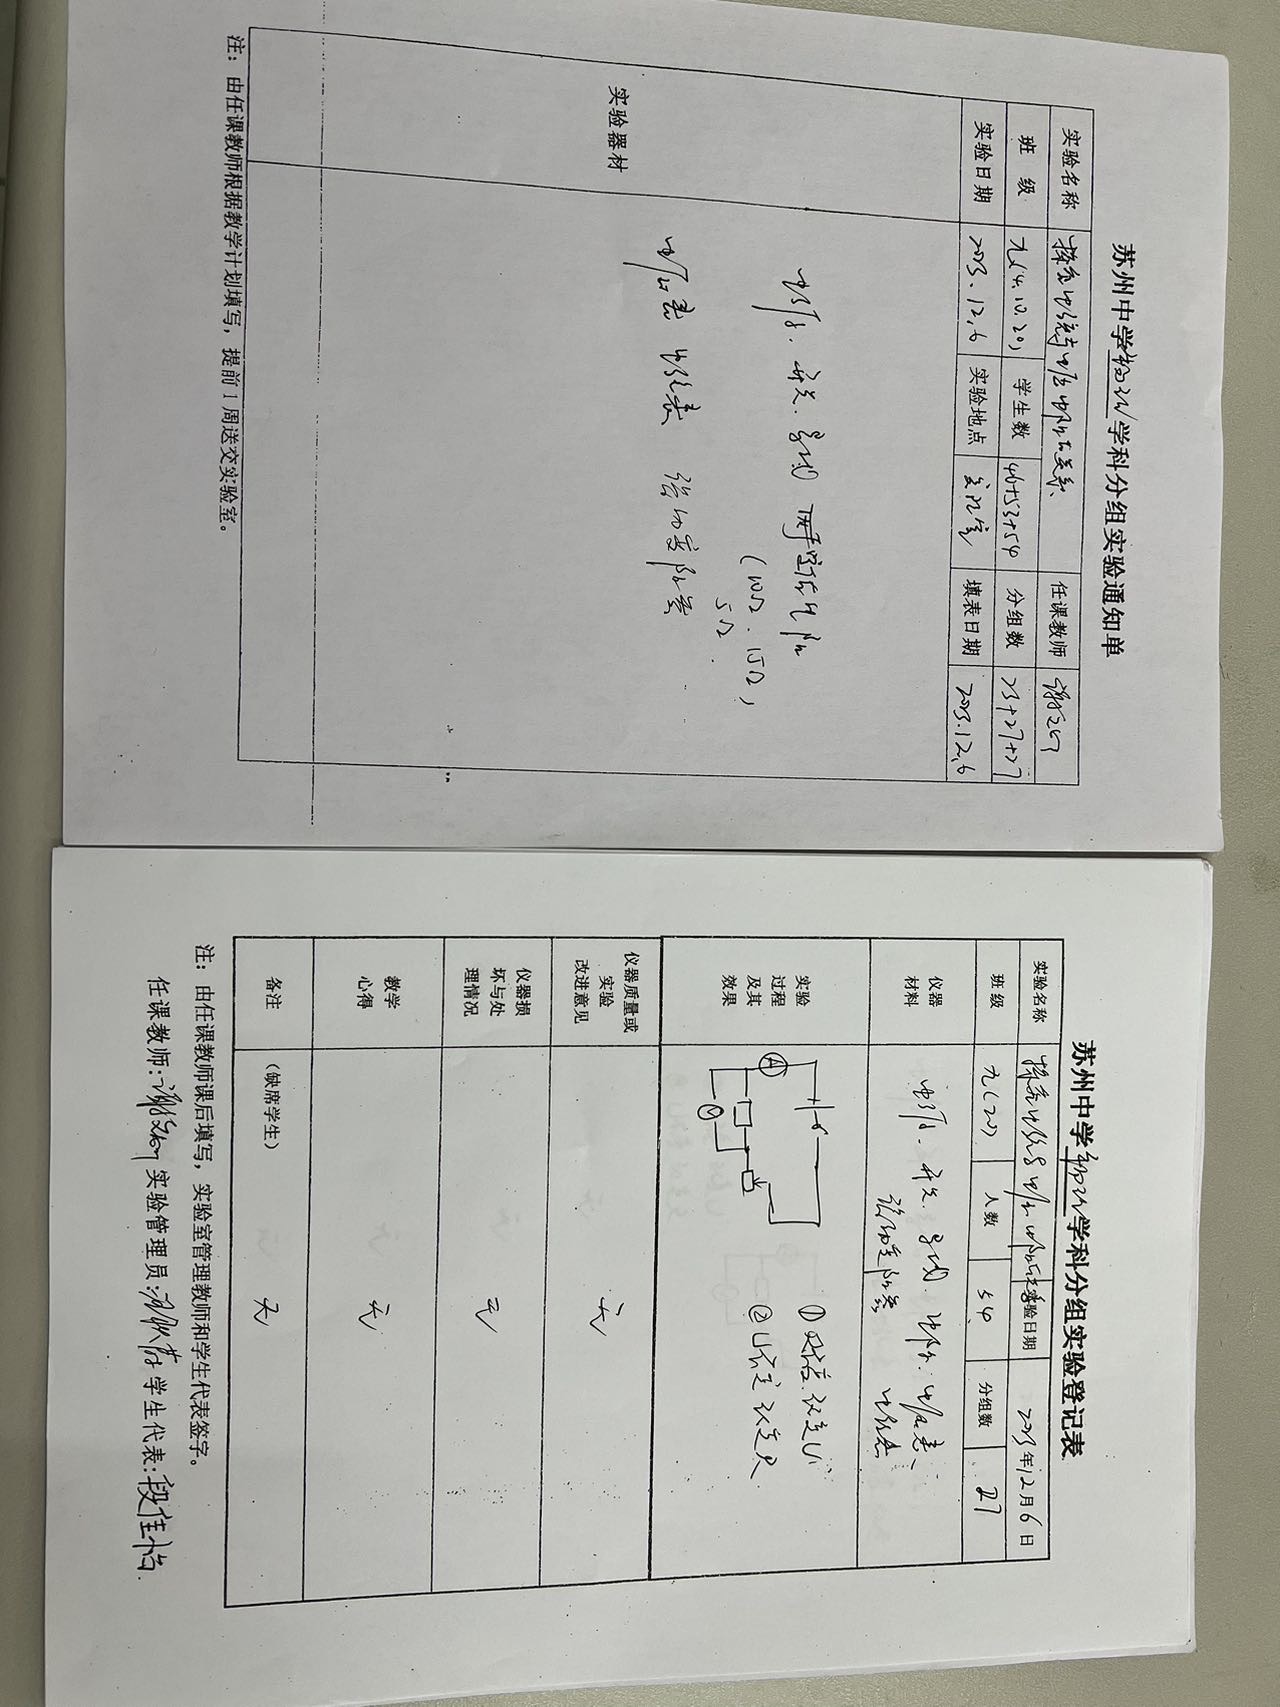 苏州中学物理学科分组实验通知单
实验名称 探究电流与电压电阻的关系 任课教师
班 级 九(4.10.20) 学生数 46+53+54 分组数 23+27+27
实验日期 2023.12.6 实验地点 实验室 填表日期 2023.12.6
实验器材
电源、开关、导线 定值电阻
(10Ω、15Ω、
5Ω
电压表 电流表 滑动变阻器
注:由任课教师根据教学计划填写,提前1周送交实验室。
苏州中学物理学科分组实验登记表
实验名称 探究电流与电压电阻的关系 实验日期 2023年12月6日
班级 九(20) 人数 54 分组数 27
仪器
材料
电源、开关、导线、电阻、电压表、
滑动变阻器 电流表
实验
过程
及其
效果
A
V
① R一定 改变U
② U一定 改变R
仪器质量或
实验
改进意见
无
仪器损
坏与处
理情况
无
教学
心得
无
备注
(缺席学生)
无
注:由任课教师课后填写,实验室管理教师和学生代表签字。
任课教师: 实验管理员: 学生代表:段佳怡